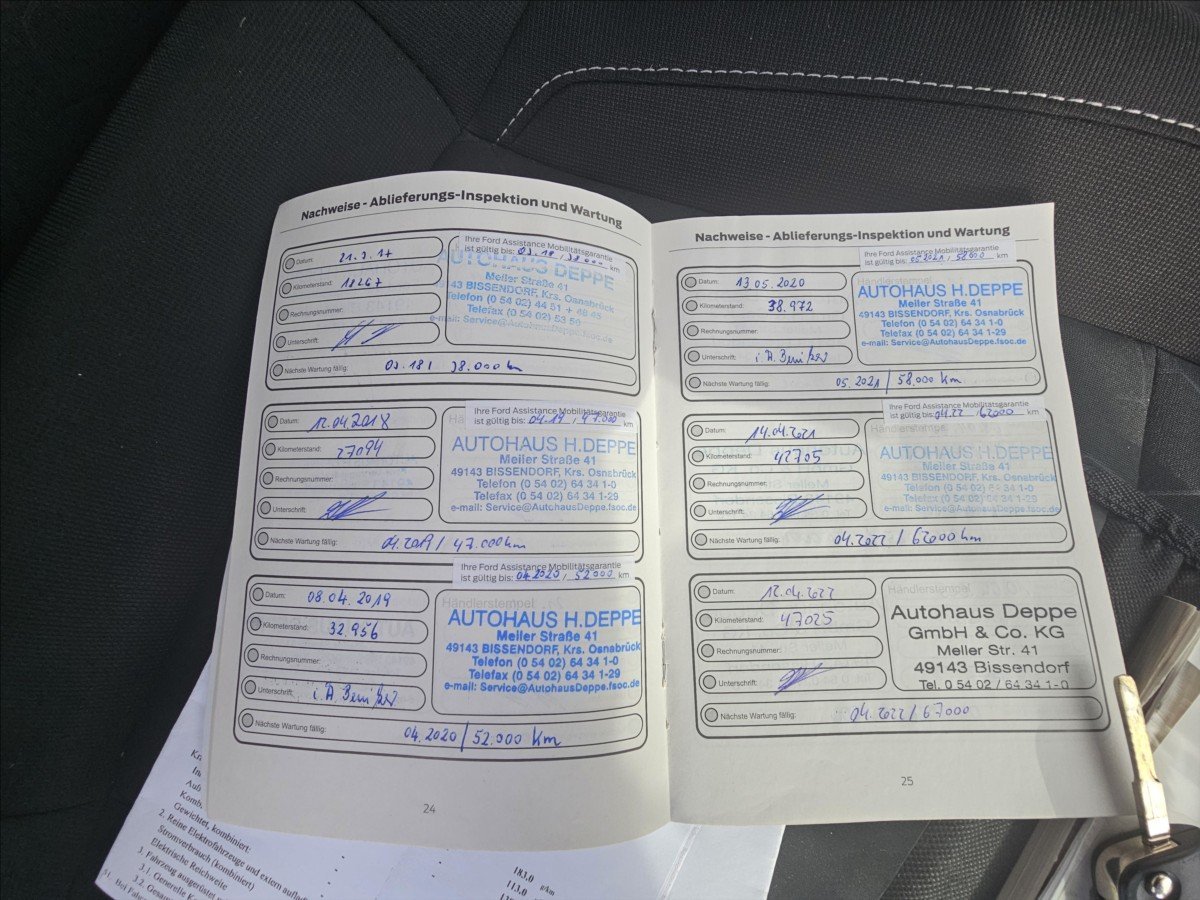 Nachweise - Ablieferungs-Inspektion und Wartung
Ihre Ford Assistance Mobilitätsgarantie
ist gültig bis: 03.18 / 38.000 km
Datum: 21.3.17
Kilometerstand: 18267
Rechnungsnummer:
Unterschrift:
AUTOHAUS DEPPE
Meller Straße 41
49143 BISSENDORF, Krs. Osnabrück
Telefon (0 54 02) 44 51 + 48 45
Telefax (0 54 02) 53 50
e-mail: Service@AutohausDeppe.fsoc.de
Nächste Wartung fällig: 03.18 / 38.000 km
Ihre Ford Assistance Mobilitätsgarantie
ist gültig bis: 04.19 / 47.000 km
Datum: 12.04.2018
Kilometerstand: 27094
Rechnungsnummer:
Unterschrift:
Händlerstempel
AUTOHAUS H.DEPPE
Meller Straße 41
49143 BISSENDORF, Krs. Osnabrück
Telefon (0 54 02) 64 34 1-0
Telefax (0 54 02) 64 34 1-29
e-mail: Service@AutohausDeppe.fsoc.de
Nächste Wartung fällig: 04.2019 / 47.000 km
Ihre Ford Assistance Mobilitätsgarantie
ist gültig bis: 04.2020 / 52.000 km
Datum: 08.04.2019
Kilometerstand: 32.956
Rechnungsnummer:
Unterschrift: i.A.
Händlerstempel
AUTOHAUS H.DEPPE
Meller Straße 41
49143 BISSENDORF, Krs. Osnabrück
Telefon (0 54 02) 64 34 1-0
Telefax (0 54 02) 64 34 1-29
e-mail: Service@AutohausDeppe.fsoc.de
Nächste Wartung fällig: 04.2020 / 52.000 km
24
Nachweise - Ablieferungs-Inspektion und Wartung
Ihre Ford Assistance Mobilitätsgarantie
ist gültig bis: 05.2021 / 58.000 km
Datum: 13.05.2020
Kilometerstand: 38.972
Rechnungsnummer:
Unterschrift: i.A.
Händlerstempel
AUTOHAUS H.DEPPE
Meller Straße 41
49143 BISSENDORF, Krs. Osnabrück
Telefon (0 54 02) 64 34 1-0
Telefax (0 54 02) 64 34 1-29
e-mail: Service@AutohausDeppe.fsoc.de
Nächste Wartung fällig: 05.2021 / 58.000 km
Ihre Ford Assistance Mobilitätsgarantie
ist gültig bis: 04.22 / 62000 km
Datum: 14.04.2021
Kilometerstand: 42705
Rechnungsnummer:
Unterschrift:
Händlerstempel
AUTOHAUS H.DEPPE
Meller Straße 41
49143 BISSENDORF, Krs. Osnabrück
Telefon (0 54 02) 64 34 1-0
Telefax (0 54 02) 64 34 1-29
e-mail: Service@AutohausDeppe.fsoc.de
Nächste Wartung fällig: 04.2022 / 62000 km
Datum: 12.04.2022
Kilometerstand: 47025
Rechnungsnummer:
Unterschrift:
Händlerstempel
Autohaus Deppe
GmbH & Co. KG
Meller Str. 41
49143 Bissendorf
Tel. 0 54 02 / 64 34 1-0
Nächste Wartung fällig: 04.2022 / 67000
25
Gewichtet, kombiniert:
2. Reine Elektrofahrzeuge und extern
Stromverbrauch (kombiniert)
Elektrische Reichweite
3. Fahrzeug ausgerüstet
3.1. Generelle
3.2.
183.0 g/km
113.0